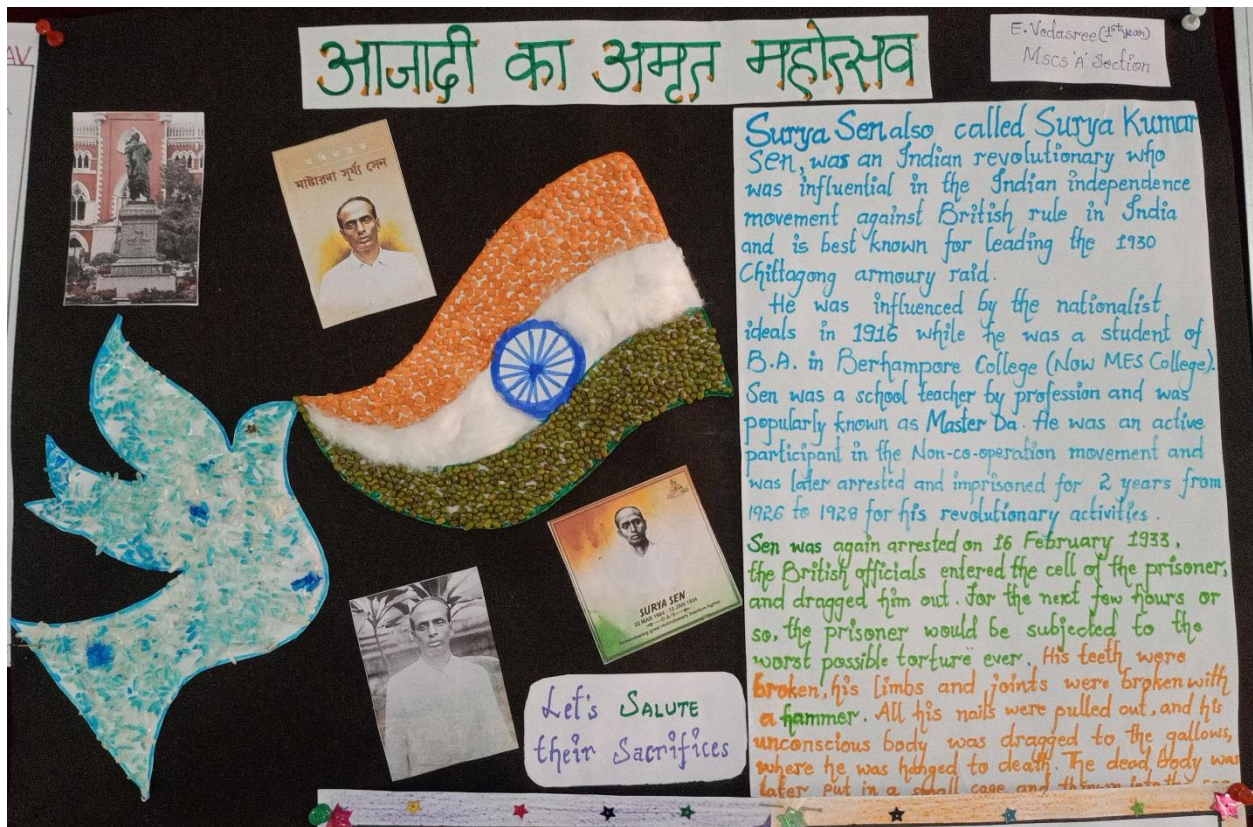 AV
आजादी का अमृत महोत्सव
E. Vedasree (1st year)
MSCS 'A' Section
মাষ্টারদা সূর্য্য সেন
SURYA SEN
22 MAR 1894 - 12 JAN 1934
Remembering great revolutionary freedom fighter
Let's SALUTE
their Sacrifices
Surya Sen also called Surya Kumar
Sen, was an Indian revolutionary who
was influential in the Indian independence
movement against British rule in India
and is best known for leading the 1930
Chittagong armoury raid.
He was influenced by the nationalist
ideals in 1916 while he was a student of
B.A. in Berhampore College (Now MES College).
Sen was a school teacher by profession and was
popularly known as Master Da. He was an active
participant in the Non-co-operation movement and
was later arrested and imprisoned for 2 years from
1926 to 1928 for his revolutionary activities.
Sen was again arrested on 16 February 1933,
the British officials entered the cell of the prisoner,
and dragged him out. For the next few hours or
so, the prisoner would be subjected to the
worst possible torture ever. His teeth were
broken, his limbs and joints were broken with
a hammer. All his nails were pulled out, and his
unconscious body was dragged to the gallows,
where he was hanged to death. The dead body was
later put in a small cage and thrown into the